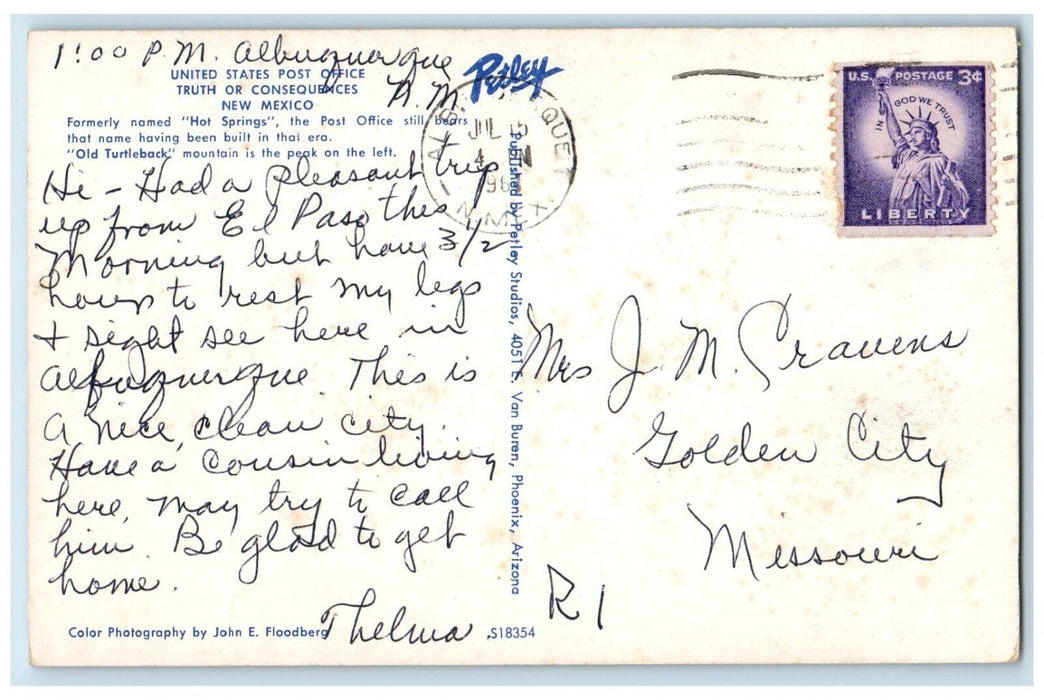 1:00 P.M. Albuquerque
N.M.
UNITED STATES POST OFFICE
TRUTH OR CONSEQUENCES
NEW MEXICO
Formerly named "Hot Springs", the Post Office still bears
that name having been built in that era.
"Old Turtleback" mountain is the peak on the left.
Hi - Had a pleasant trip
up from El Paso this
Morning but have 3 1/2
hours to rest my legs
+ sight see here in
Albuquerque. This is
a nice, clean city.
Have a cousin living
here, may try to call
him. Be glad to get
home.
Thelma
Color Photography by John E. Floodberg
S18354
Petley
Published by Petley Studios, 4051 E. Van Buren, Phoenix, Arizona
JUL 5
N. MEX.
U.S. POSTAGE 3¢
IN GOD WE TRUST
LIBERTY
Mrs J. M. Cravens
Golden City
Missouri
R 1